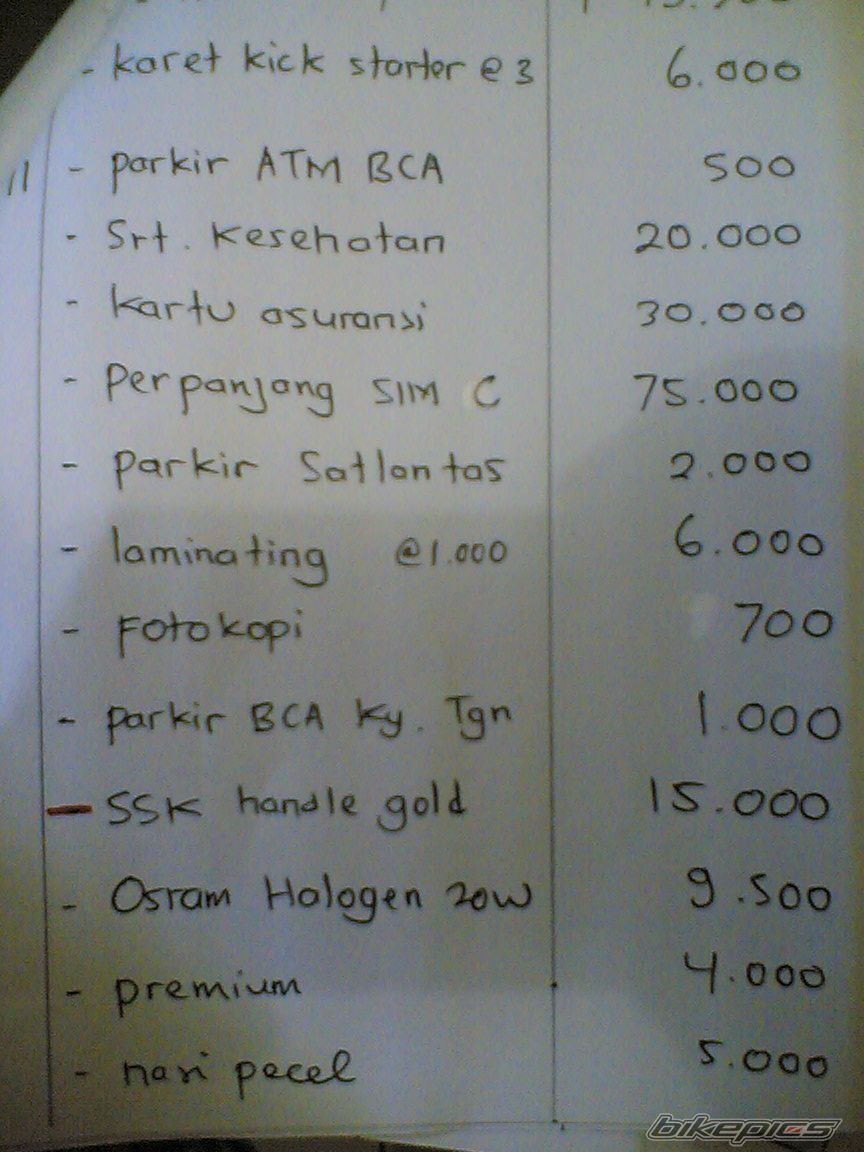 - karet kick starter @ 3 6.000
11 - parkir ATM BCA 500
- Srt. Kesehatan 20.000
- kartu asuransi 30.000
- Perpanjang SIM C 75.000
- Parkir Satlantas 2.000
- laminating @1.000 6.000
- Fotokopi 700
- parkir BCA Ky. Tgn 1.000
- SSK handle gold 15.000
- Osram Halogen 20W 9.500
- premium 4.000
- nasi pecel 5.000
bikepics